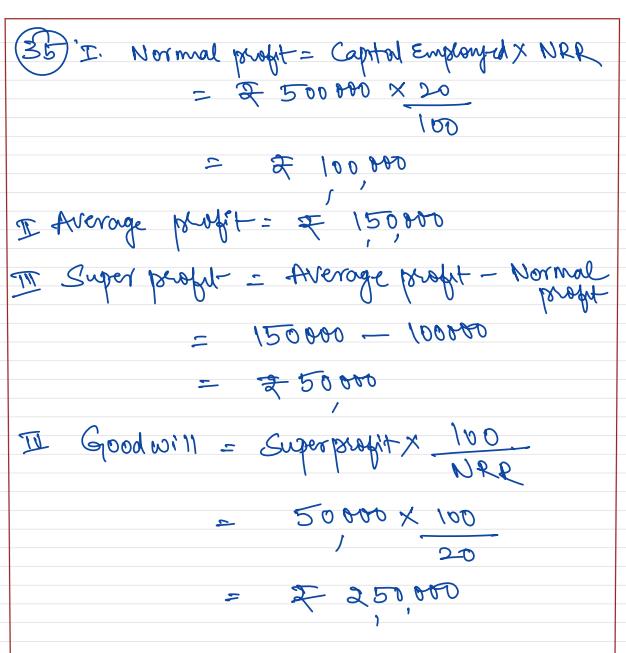 35 I. Normal profit = Capital Employed X NRR
= ₹ 500000 × 20/100
= ₹ 100,000
II Average profit = ₹ 150,000
III Super profit = Average profit - Normal profit
= 150000 - 100000
= ₹ 50,000
IV Goodwill = Super profit X 100/NRR
= 50,000 × 100/20
= ₹ 250,000